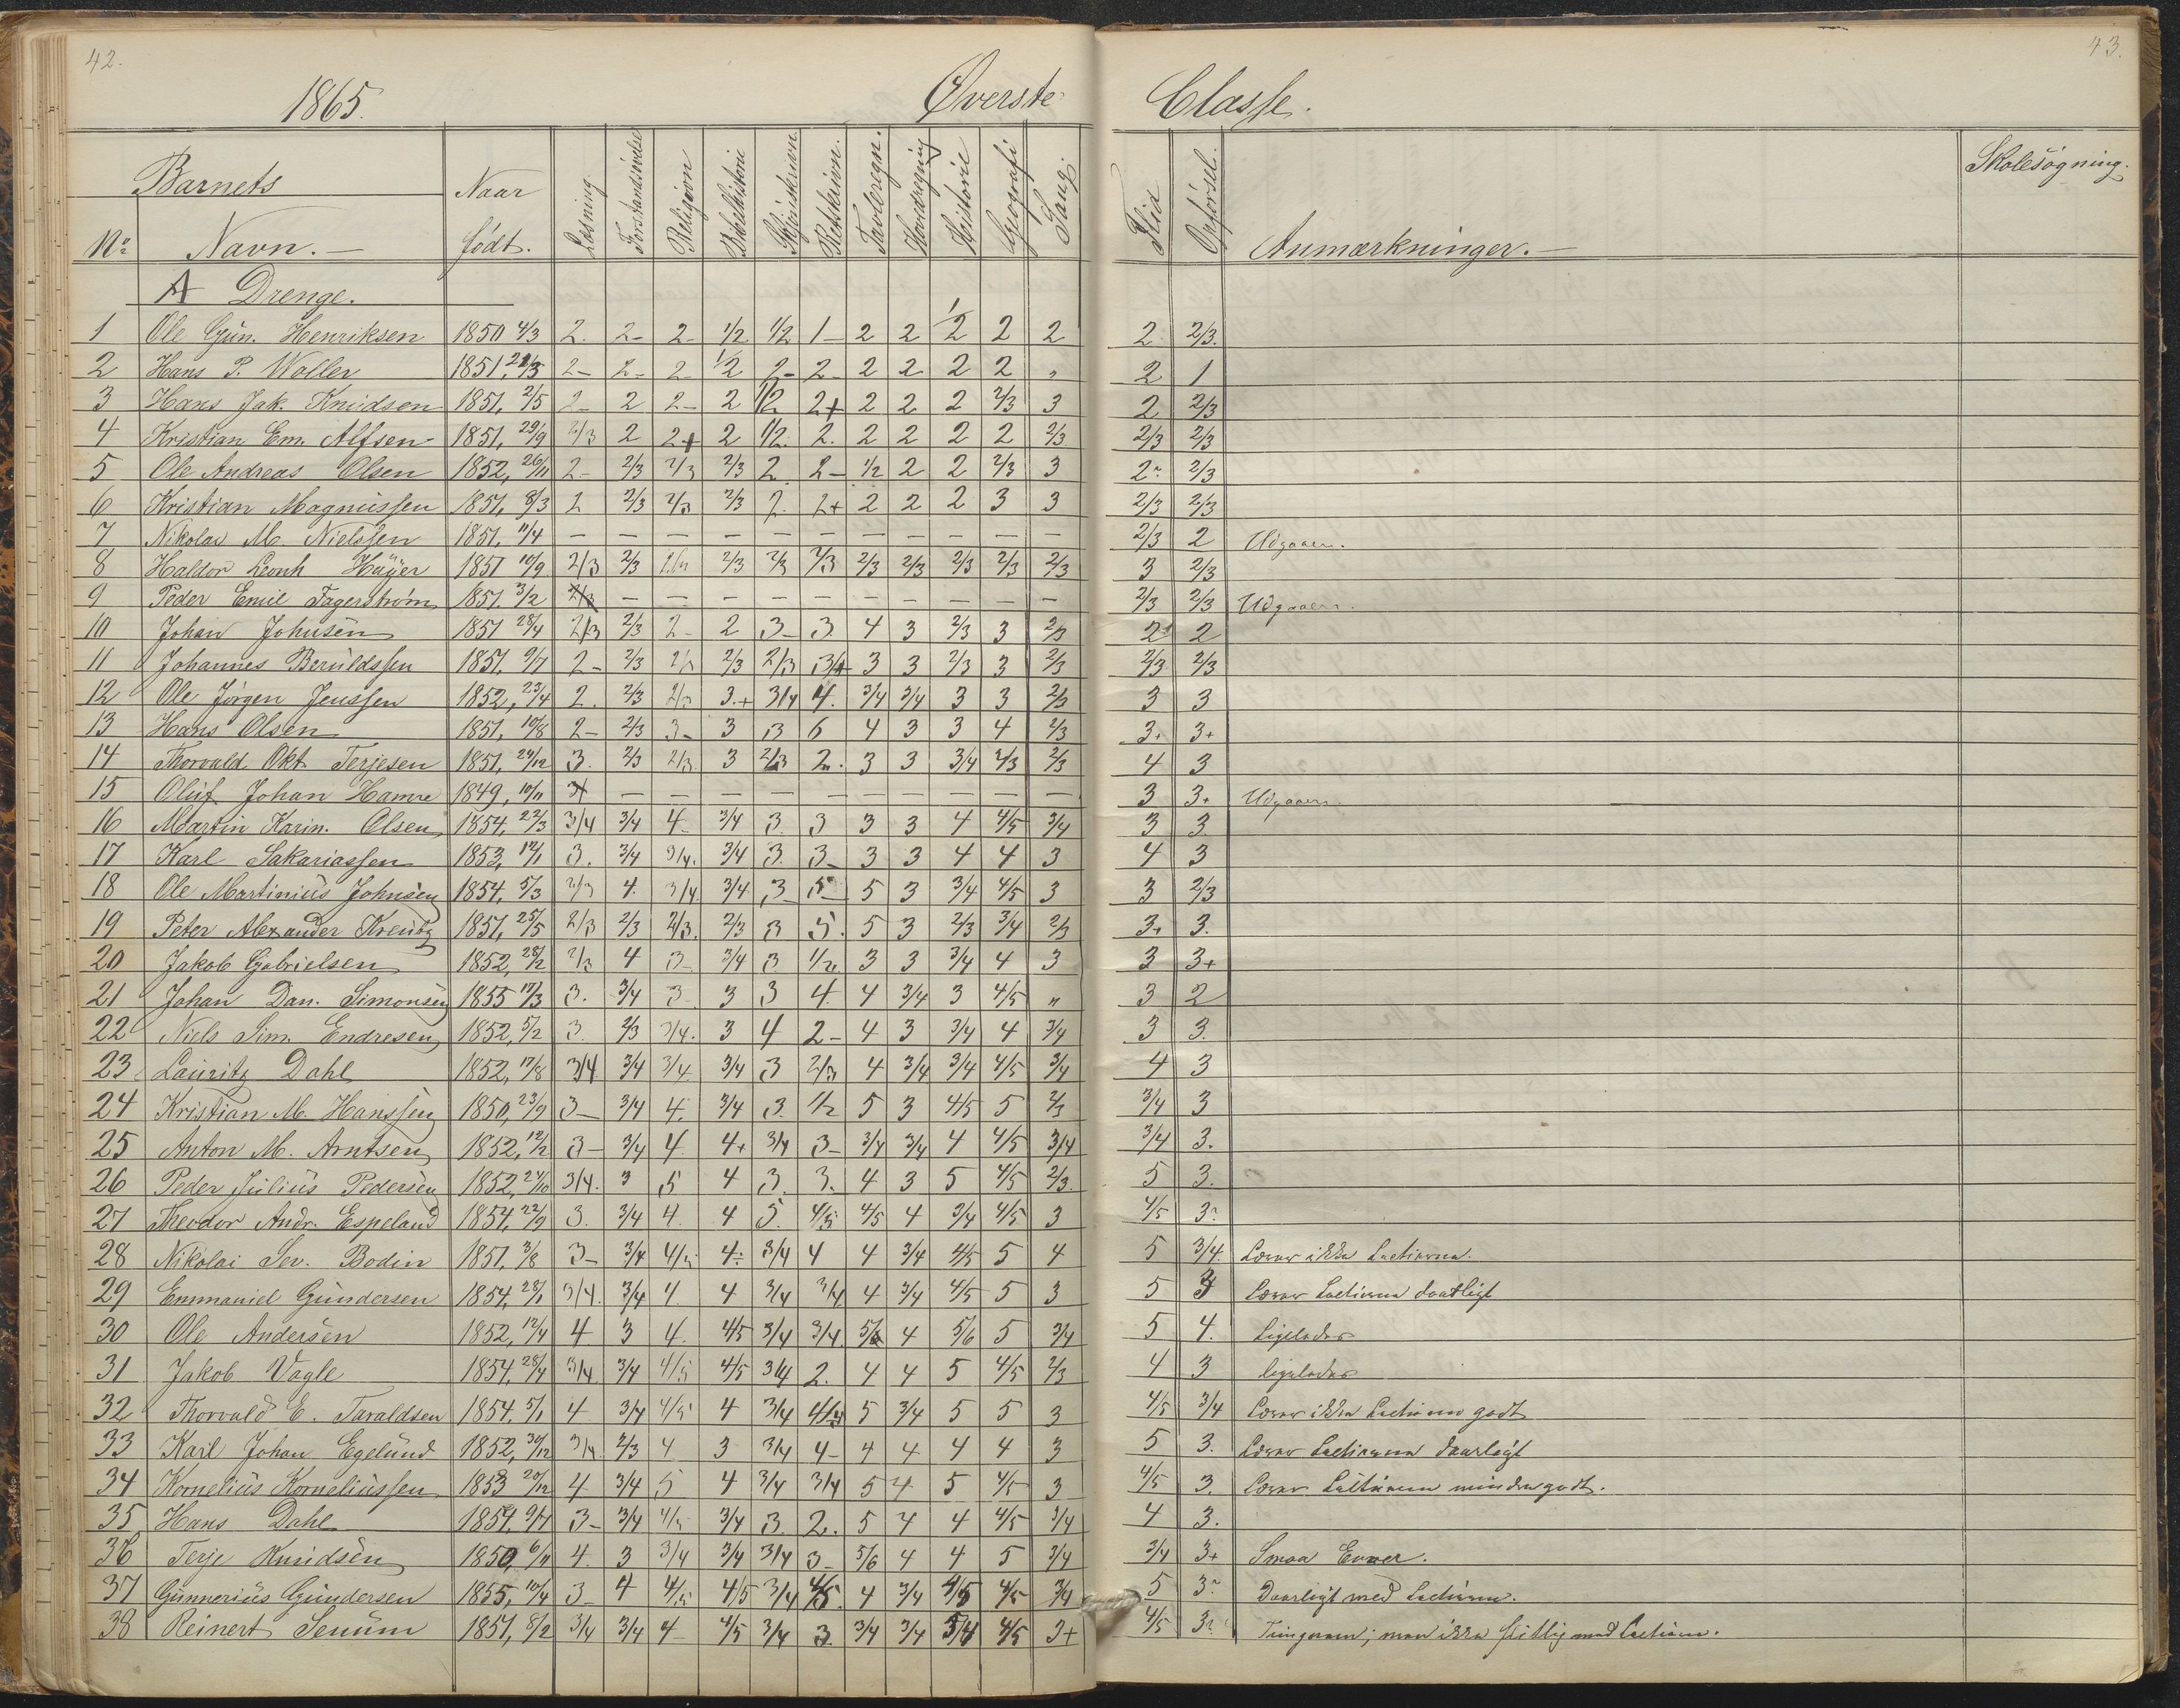 42.
43.
1865. Øverste Classe.
Barnets Naar Læsning. Forstandsøvelse Religion Bibelhistorie Skjönskrivn. Retskrivn. Tavleregn. Hovedregning Historie Geografi Sang. Flid Opførsel. Skolesøgning.
No Navn. födt. Anmærkninger.
A Drenge.
1 Ole Gun. Henriksen 1850 4/3 2. 2- 2- 1/2 1/2 1- 2 2 1/2 2 2 2 2/3.
2 Hans P. Woller 1851, 21/3 2- 2- 2- 1/2 2- 2- 2 2 2 2 " 2 1
3 Hans Jak. Knudsen 1851, 2/5 2- 2 2- 2 1/2 2+ 2 2 2 2/3 3 2 2/3
4 Kristian Em. Alfsen 1851, 29/9 2/3 2 2+ 2 1/2. 2. 2 2 2 2 2/3 2/3 2/3
5 Ole Andreas Olsen 1852, 26/11 2- 2/3 2/3 2/3 2. 2- 1/2 2 2 2/3 3 2 2/3
6 Kristian Magnussen 1851, 8/3 2 2/3 2/3 2/3 2. 2+ 2 2 2 3 3 2/3 2/3
7 Nikolai M. Nielssen 1851, 11/4 — — — — — — — — — — — 2/3 2 Udgaaen.
8 Haldor Leonh Høyer 1851 10/9 2/3 2/3 2/3 2/3 2/3 2/3 2/3 2/3 2/3 2/3 3 2/3
9 Peder Emil Fagerstrøm 1851. 3/2 2/3 — — — — — — — — — — 2/3 2/3 Udgaaen.
10 Johan Johnsen 1851 28/4 2/3 2/3 2- 2 3- 3. 4 3 2/3 3 2/3 2 2
11 Johannes Beruldssen 1851, 9/7 2- 2/3 2/3 2/3 2/3 3/4 3 3 2/3 3 2/3 2/3 2/3
12 Ole Jørgen Jenssen 1852, 23/4 2. 2/3 2/3 3.+ 3/4 4. 3/4 3/4 3 3 2/3 3 3
13 Hans Olsen 1851, 10/8 2- 2/3 3- 3 3 6 4 3 3 4 2/3 3+ 3+
14 Thorvald Okt. Terjesen 1851, 24/12 3. 2/3 2/3. 3 2/3 2. 3 3 3/4 2/3 2/3 4 3
15 Oluf Johan Hamre 1849, 10/11 3+ — — — — — — — — — — 3 3+ Udgaaen.
16 Martin Karin. Olsen 1854, 22/3 3/4 3/4 4- 3/4 3. 3 3 3 4 4/5 3/4 3 3.
17 Karl Sakariassen 1853, 12/1 3. 3/4 3/4. 3/4 3. 3- 3 3 4 4 3 4 3
18 Ole Martinius Johnsen 1854, 5/3 2/3 4. 3/4. 3/4 3- 5- 5 3 3/4 4/5 3 3 2/3
19 Peter Alexander Kreutz 1851, 25/5 2/3 2/3 2/3. 2/3 3 5. 5 3 2/3 3/4 2/3 3+ 3.
20 Jakob Gabrielsen 1852, 28/2 2/3 4 3- 3/4 3 1/2. 3 3 3/4 4 3 3 3+
21 Johan Dan. Simonsen 1855 17/3 3. 3/4 3- 3 3 4. 4 3/4 3 4/5 " 3 2
22 Niels Sim. Endresen 1852, 5/2 3. 2/3 3/4. 3 4 2- 4 3 3/4 4 3/4 3 3.
23 Lauritz Dahl 1852, 17/8 3/4 3/4 3/4 3/4 3 2/3 4 3/4 3/4 4/5 3/4 4 3
24 Kristian M. Hanssen 1850, 23/9 3- 3/4 4. 3/4 3. 1/2 5 3 4/5 5 2/3 3/4 3
25 Anton M. Arntsen 1852, 12/2 3- 3/4 4. 4+ 3/4 3- 3/4 3/4 4 4/5 3/4 3/4 3.
26 Peder Julius Pedersen 1852, 24/10 3/4. 3 5 4 3. 3. 4 3 5 4/5 2/3. 5 3.
27 Theodor Andr. Espeland 1854, 22/9 3. 3/4 4. 4 5. 4/5 4/5 4 3/4 4/5 3 4/5 3
28 Nikolai Sev. Bodin 1851, 3/8 3- 3/4 4/5 4- 3/4 4 4 3/4 4/5 5 4 5 3/4. Lærer ikke Lectierne.
29 Emmanuel Gundersen 1854, 28/1 3/4. 3/4 4. 4 3/4 3/4 4 3/4 4/5 5 3 5 3 Lærer Lectierne daarligt
30 Ole Andersen 1852, 12/4 4. 3 4. 4/5 3/4 3/4. 5/6 4 5/6 5 3/4 5 4. Ligeledes
31 Jakob Vagle 1854, 28/4 3/4 3/4 4/5 4/5 3/4 2. 4 4 5 4/5 2/3 4 3 ligeledes
32 Thorvald E. Taraldsen 1854, 5/1 4 3/4 4/5 4 3/4 4/5 5 3/4 5 5 3 4/5 3/4 Lærer ikke Lectierne godt
33 Karl Johan Egelund 1852, 30/12 3/4 2/3 4 3 3/4 4- 4 4 4 4 3 5 3. Lærer Lectierne daarligt
34 Kornelius Korneliussen 1853 20/12 4. 3/4 5 4 3/4 3/4 5 4 5 4/5 3 4/5 3. Lærer Lectierne mindre godt.
35 Hans Dahl 1854, 9/7 3- 3/4 4/5 3/4 3. 2. 5 4 4 4/5 3/4 4 3.
36 Terje Knudsen 1850, 6/11 4. 3 3/4 3/4 3/4 3- 5/6 4 4 5 3/4 3/4 3+ Smaa Evner.
37 Gunnerius Gundersen 1855, 10/4 3- 4 4/5 4/5 3/4 4/5. 4 3/4 4/5 4/5 3/4 5 3 Daarligt med Lectierne.
38 Reinert Senum 1851, 8/2 3/4 3/4 4- 4/5 3/4 3. 3/4 3/4 3/4 4/5 3+ 4/5 3 Tungnem; men ikke flittig med Lectierne.